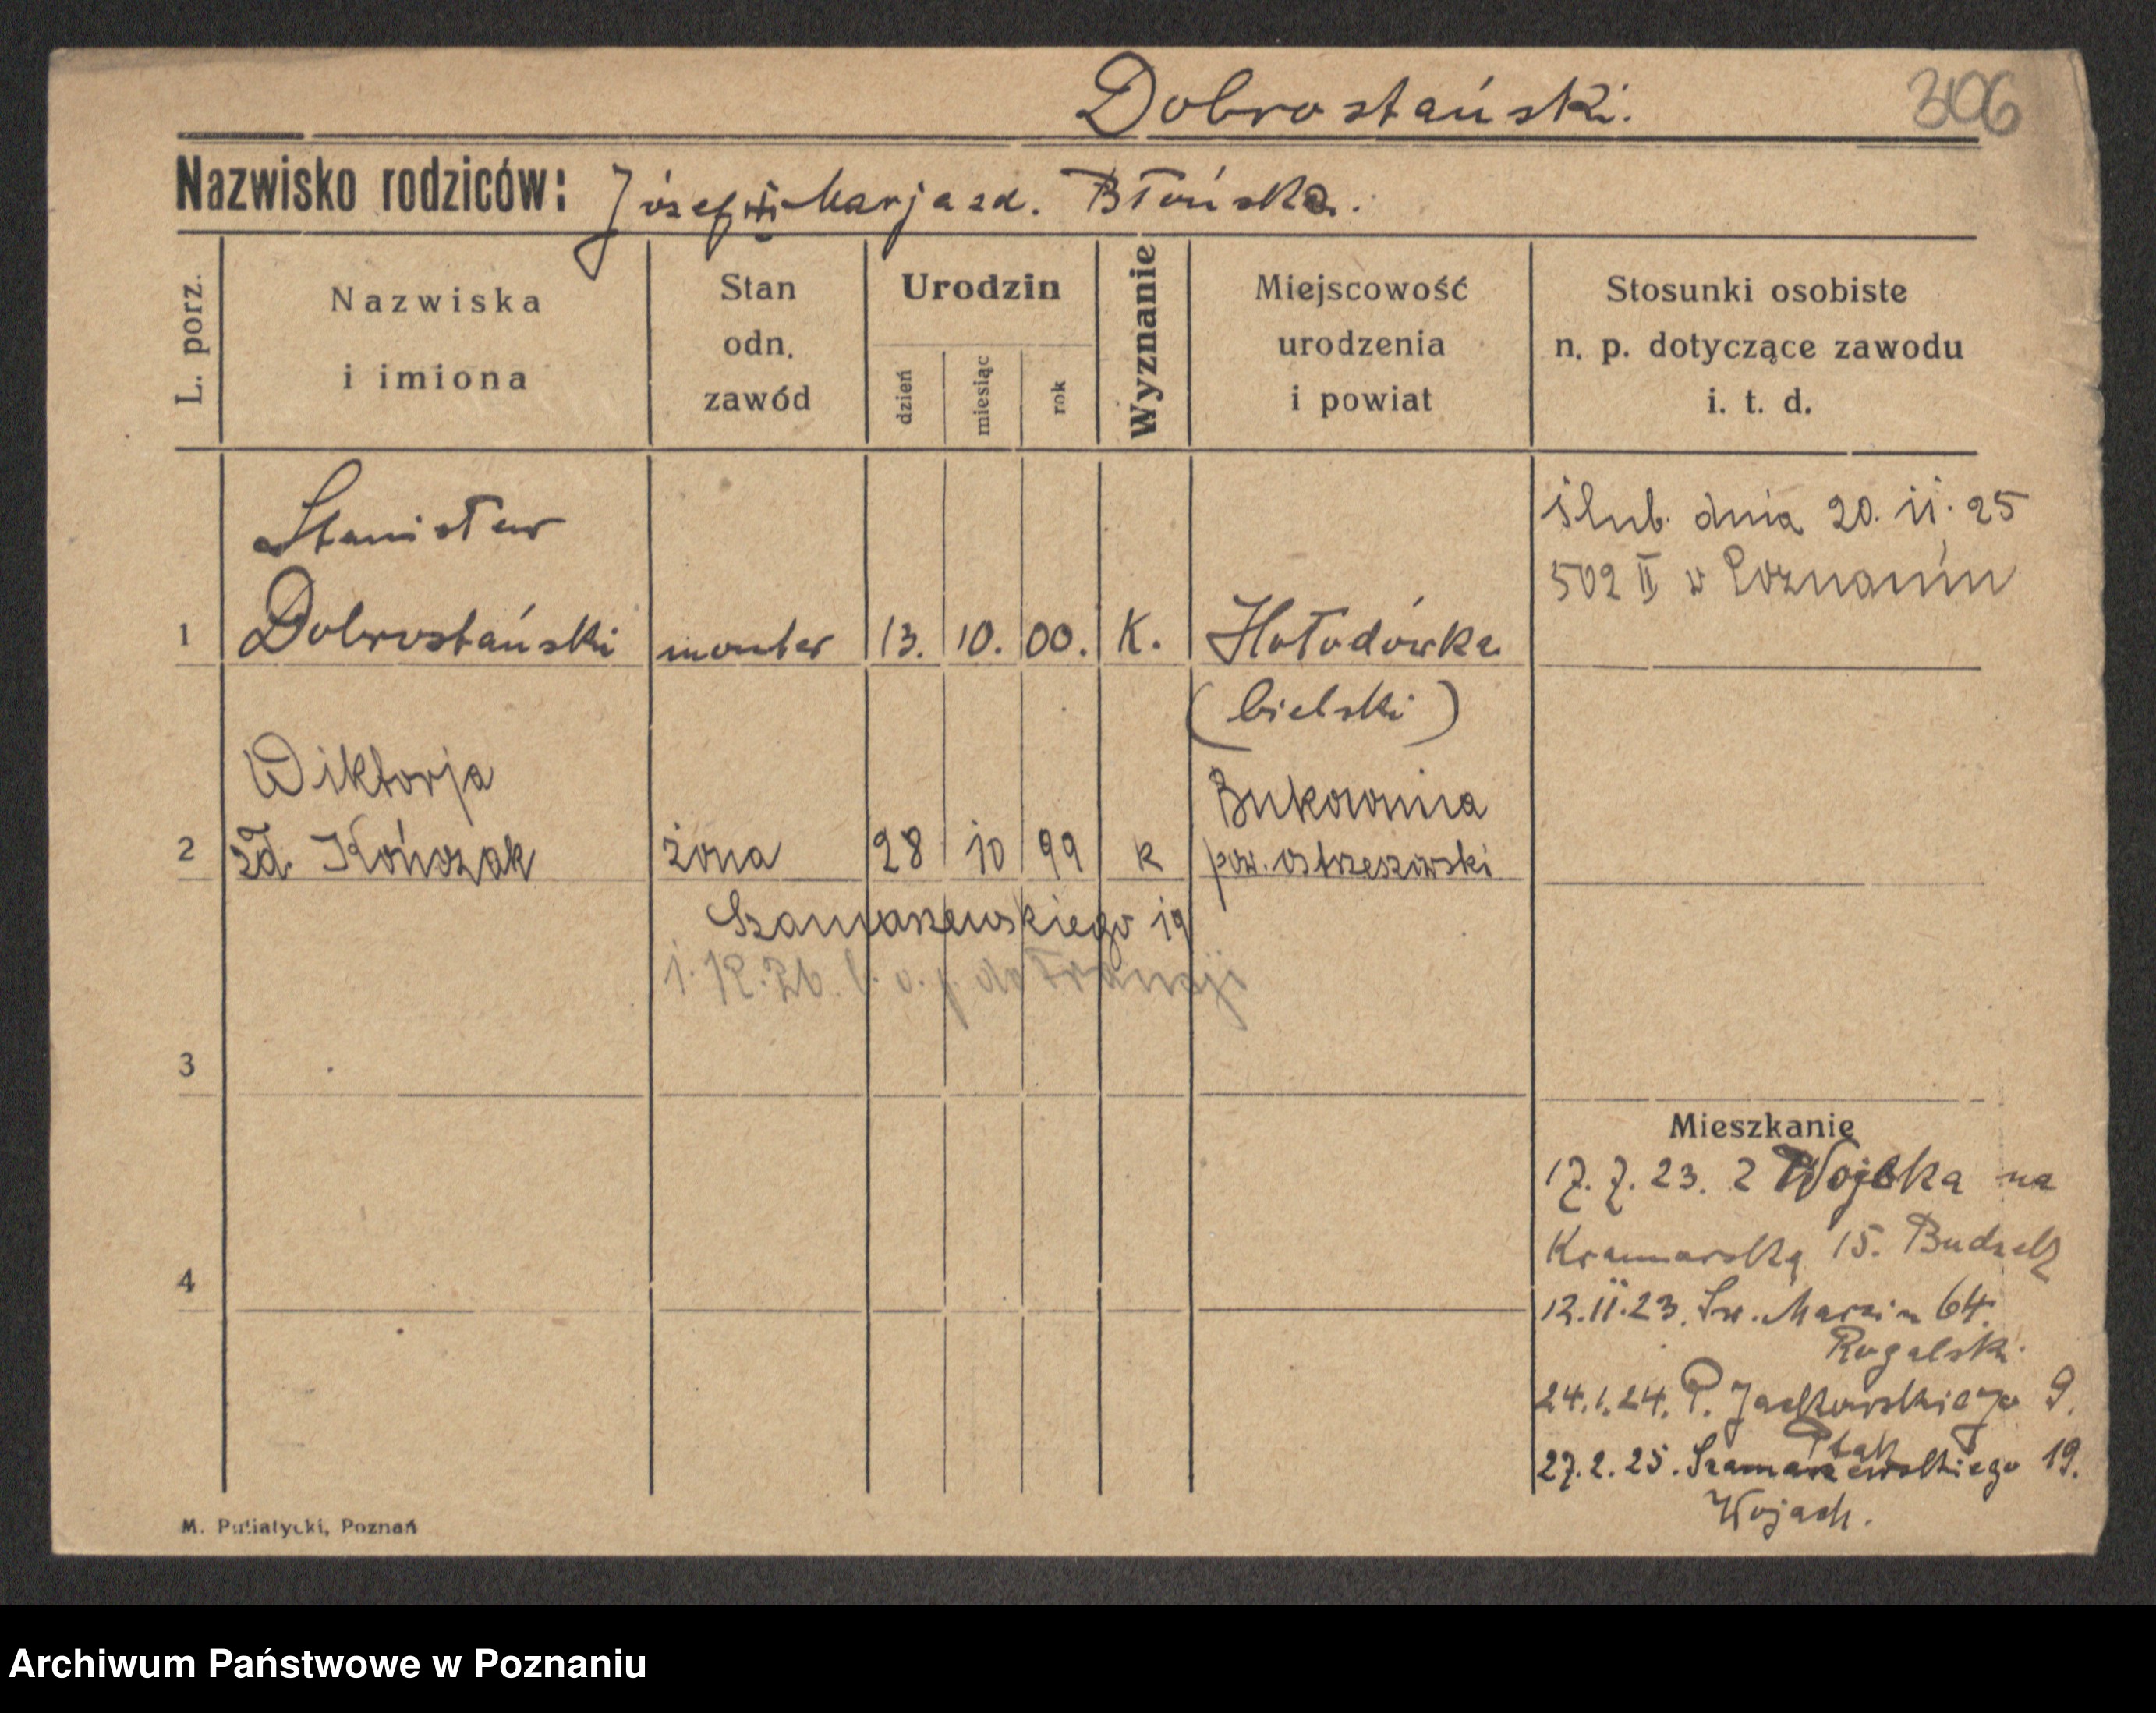 Dobrostański.
306
Nazwisko rodziców: Józef i Marja zd. Błońska.
L. porz.
Nazwiska
i imiona
Stan
odn.
zawód
Urodzin
dzień
miesiąc
rok
Wyznanie
Miejscowość
urodzenia
i powiat
Stosunki osobiste
n. p. dotyczące zawodu
i. t. d.
ślub. dnia 20. 11. 25
502 II w Poznaniu
Stanisław
1 Dobrostański monter 13. 10. 00. K. Hołodówka
(bielski)
Wiktorja
2 zd. Kończak żona 28 10 99 k
Bukownica
pow. ostrzeszowski
Szamarzewskiego 19
1. 12. 26. do Francji
3
4
Mieszkanie
17. 7. 23. z Wojska na
Kramarską 15.
12. 11. 23. Św. Marcin 64.
Rogalski.
24. 1. 24. P. Jackowskiego 9.
Ptak
27. 2. 25. Szamarzewskiego 19.
Wojach.
M. Putiatycki, Poznań
Archiwum Państwowe w Poznaniu